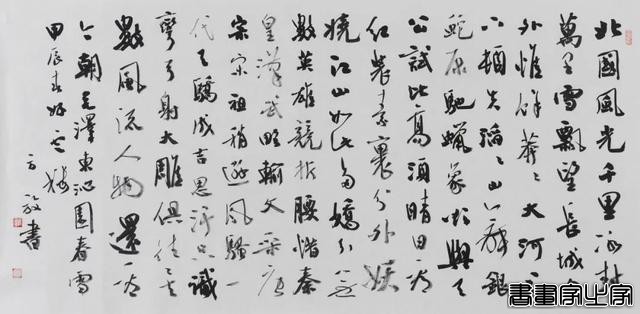 北國風光千里冰封
萬里雪飄望長城
外惟餘莽〻大河上
下頓失滔〻山舞銀
蛇原馳蠟象欲與天
公試比高須晴日看
紅裝素裹分外妖
嬈江山如此多嬌引無
數英雄競折腰惜秦
皇漢武略輸文采唐
宗宋祖稍遜風騷一
代天驕成吉思汗只識
彎弓射大雕俱往矣
數風流人物還看
今朝毛澤東沁園春雪
甲辰春
書
書畫家